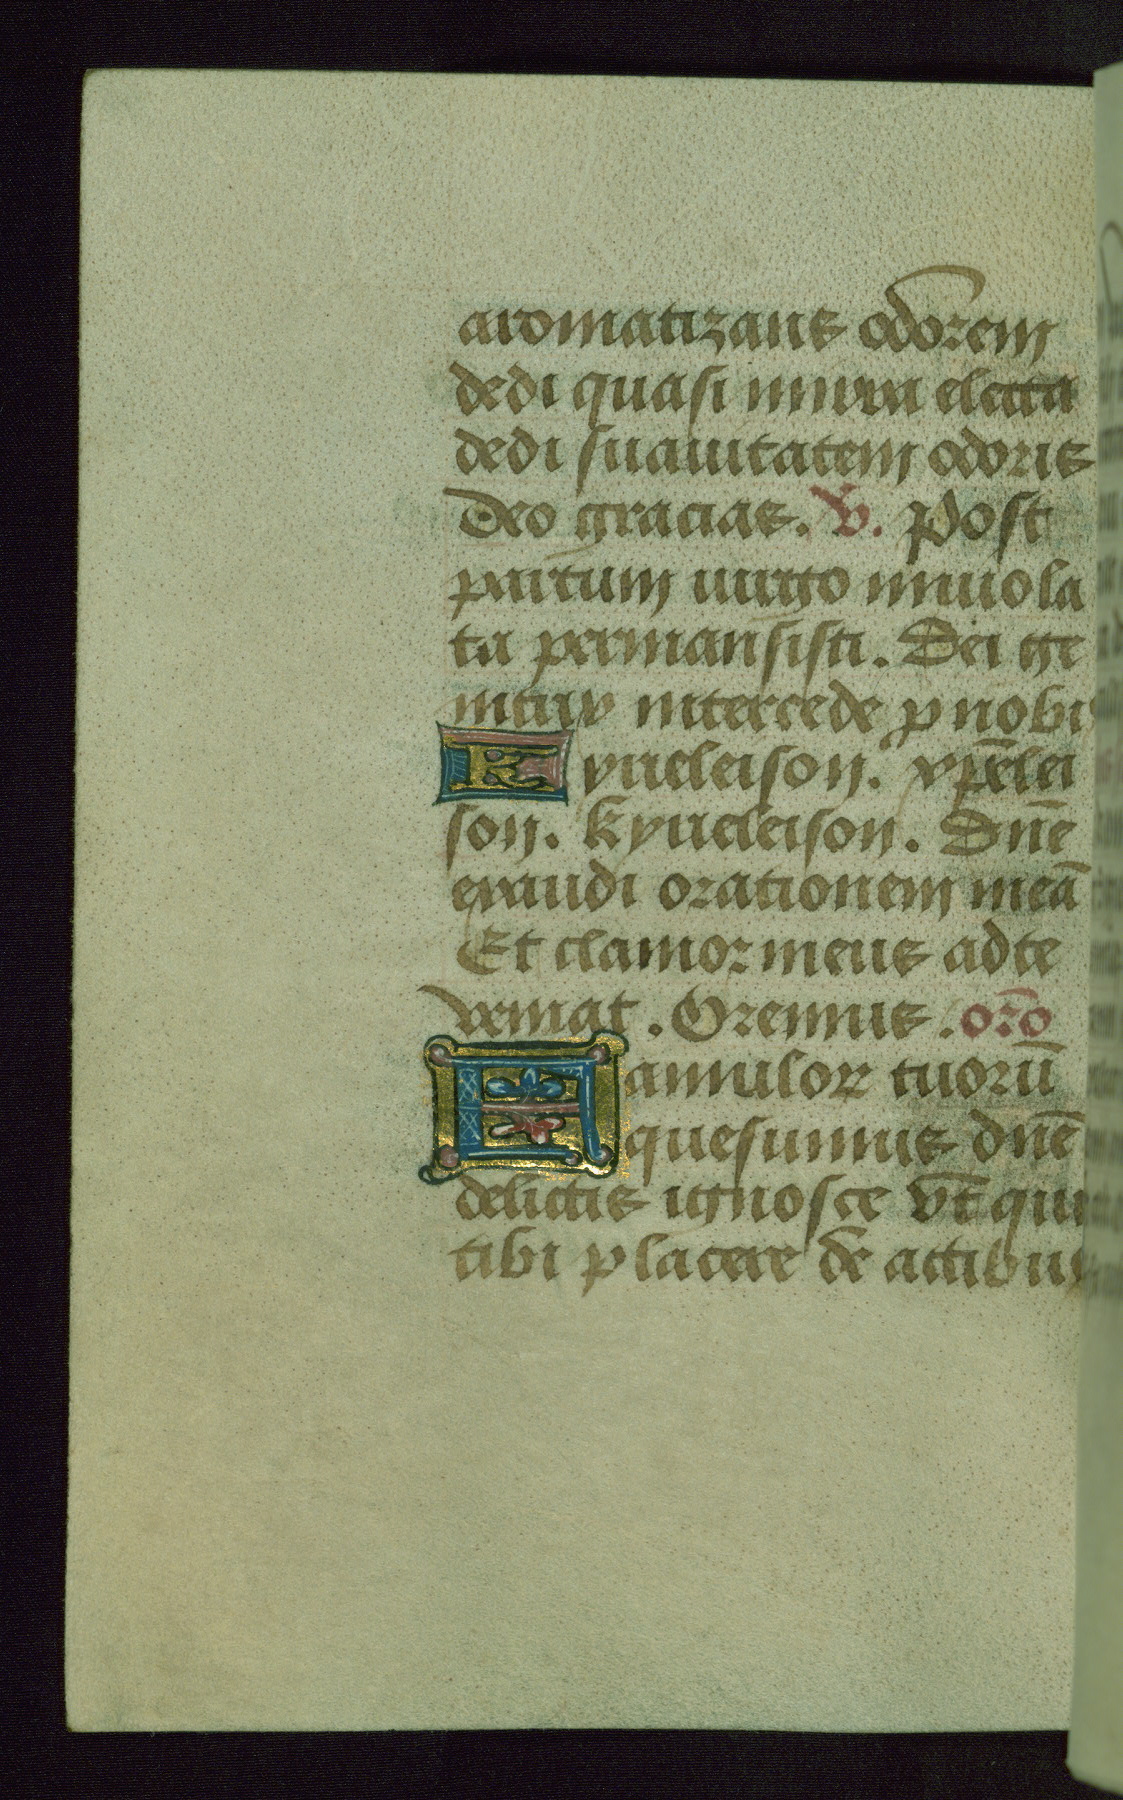 aromatizans odorem
dedi quasi mirra electa
dedi suauitatem odoris
Deo gracias. V. Post
partum uirgo inuiola
ta permansisti. Dei ge
nitrix intercede p nobis
Kyrieleison. xp̄elei
son. kyrieleison. Dn̄e
exaudi orationem meā
Et clamor meus ad te
veniat. Oremus. or̄o
Famuloꝝ tuorū
quesumus dn̄e
delictis ignosce vt̄ qui
tibi placere de actibus